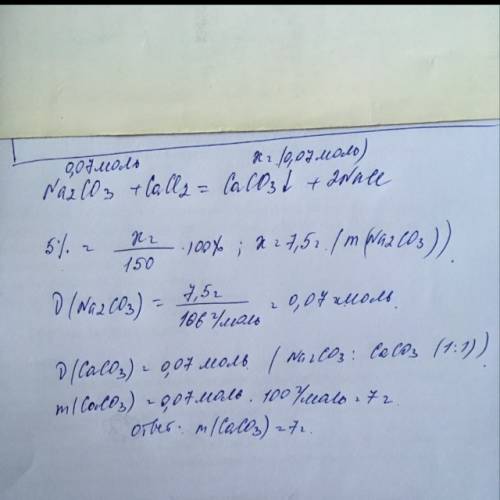 0,07моль хг (0,07моль)
Na2CO3 + CaCl2 = CaCO3↓ + 2NaCl
5% = хг/150 · 100% ; х = 7,5г. (m(Na2CO3)).
D(Na2CO3) = 7,5г/106г/моль = 0,07 моль.
D(CaCO3) = 0,07моль. (Na2CO3 : CaCO3 (1:1))
m(CaCO3) = 0,07моль · 100г/моль = 7г.
ответ. m(CaCO3) = 7г.